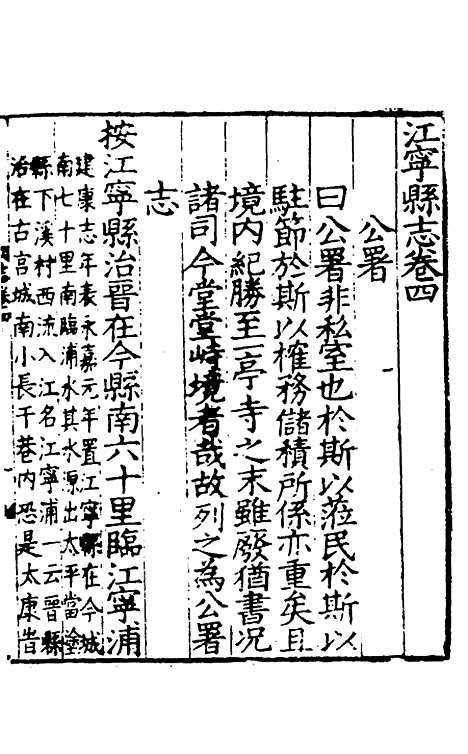 江寧縣志卷四
公署
曰公署非私室也於斯以蒞民於斯以
駐節於斯以榷務儲積所係亦重矣且
境内紀勝至一亭寺之末雖廢猶書况
諸司今堂堂峙境者哉故列之為公署
志
按江寧縣治晉在今縣南六十里臨江寧浦
建康志年表永嘉元年置江寧縣在今城
南七十里南臨浦水其水源出太平當塗
縣下溪村西流入江名江寧浦一云晉縣
治在古宮城南小長干巷内恐是太康旹